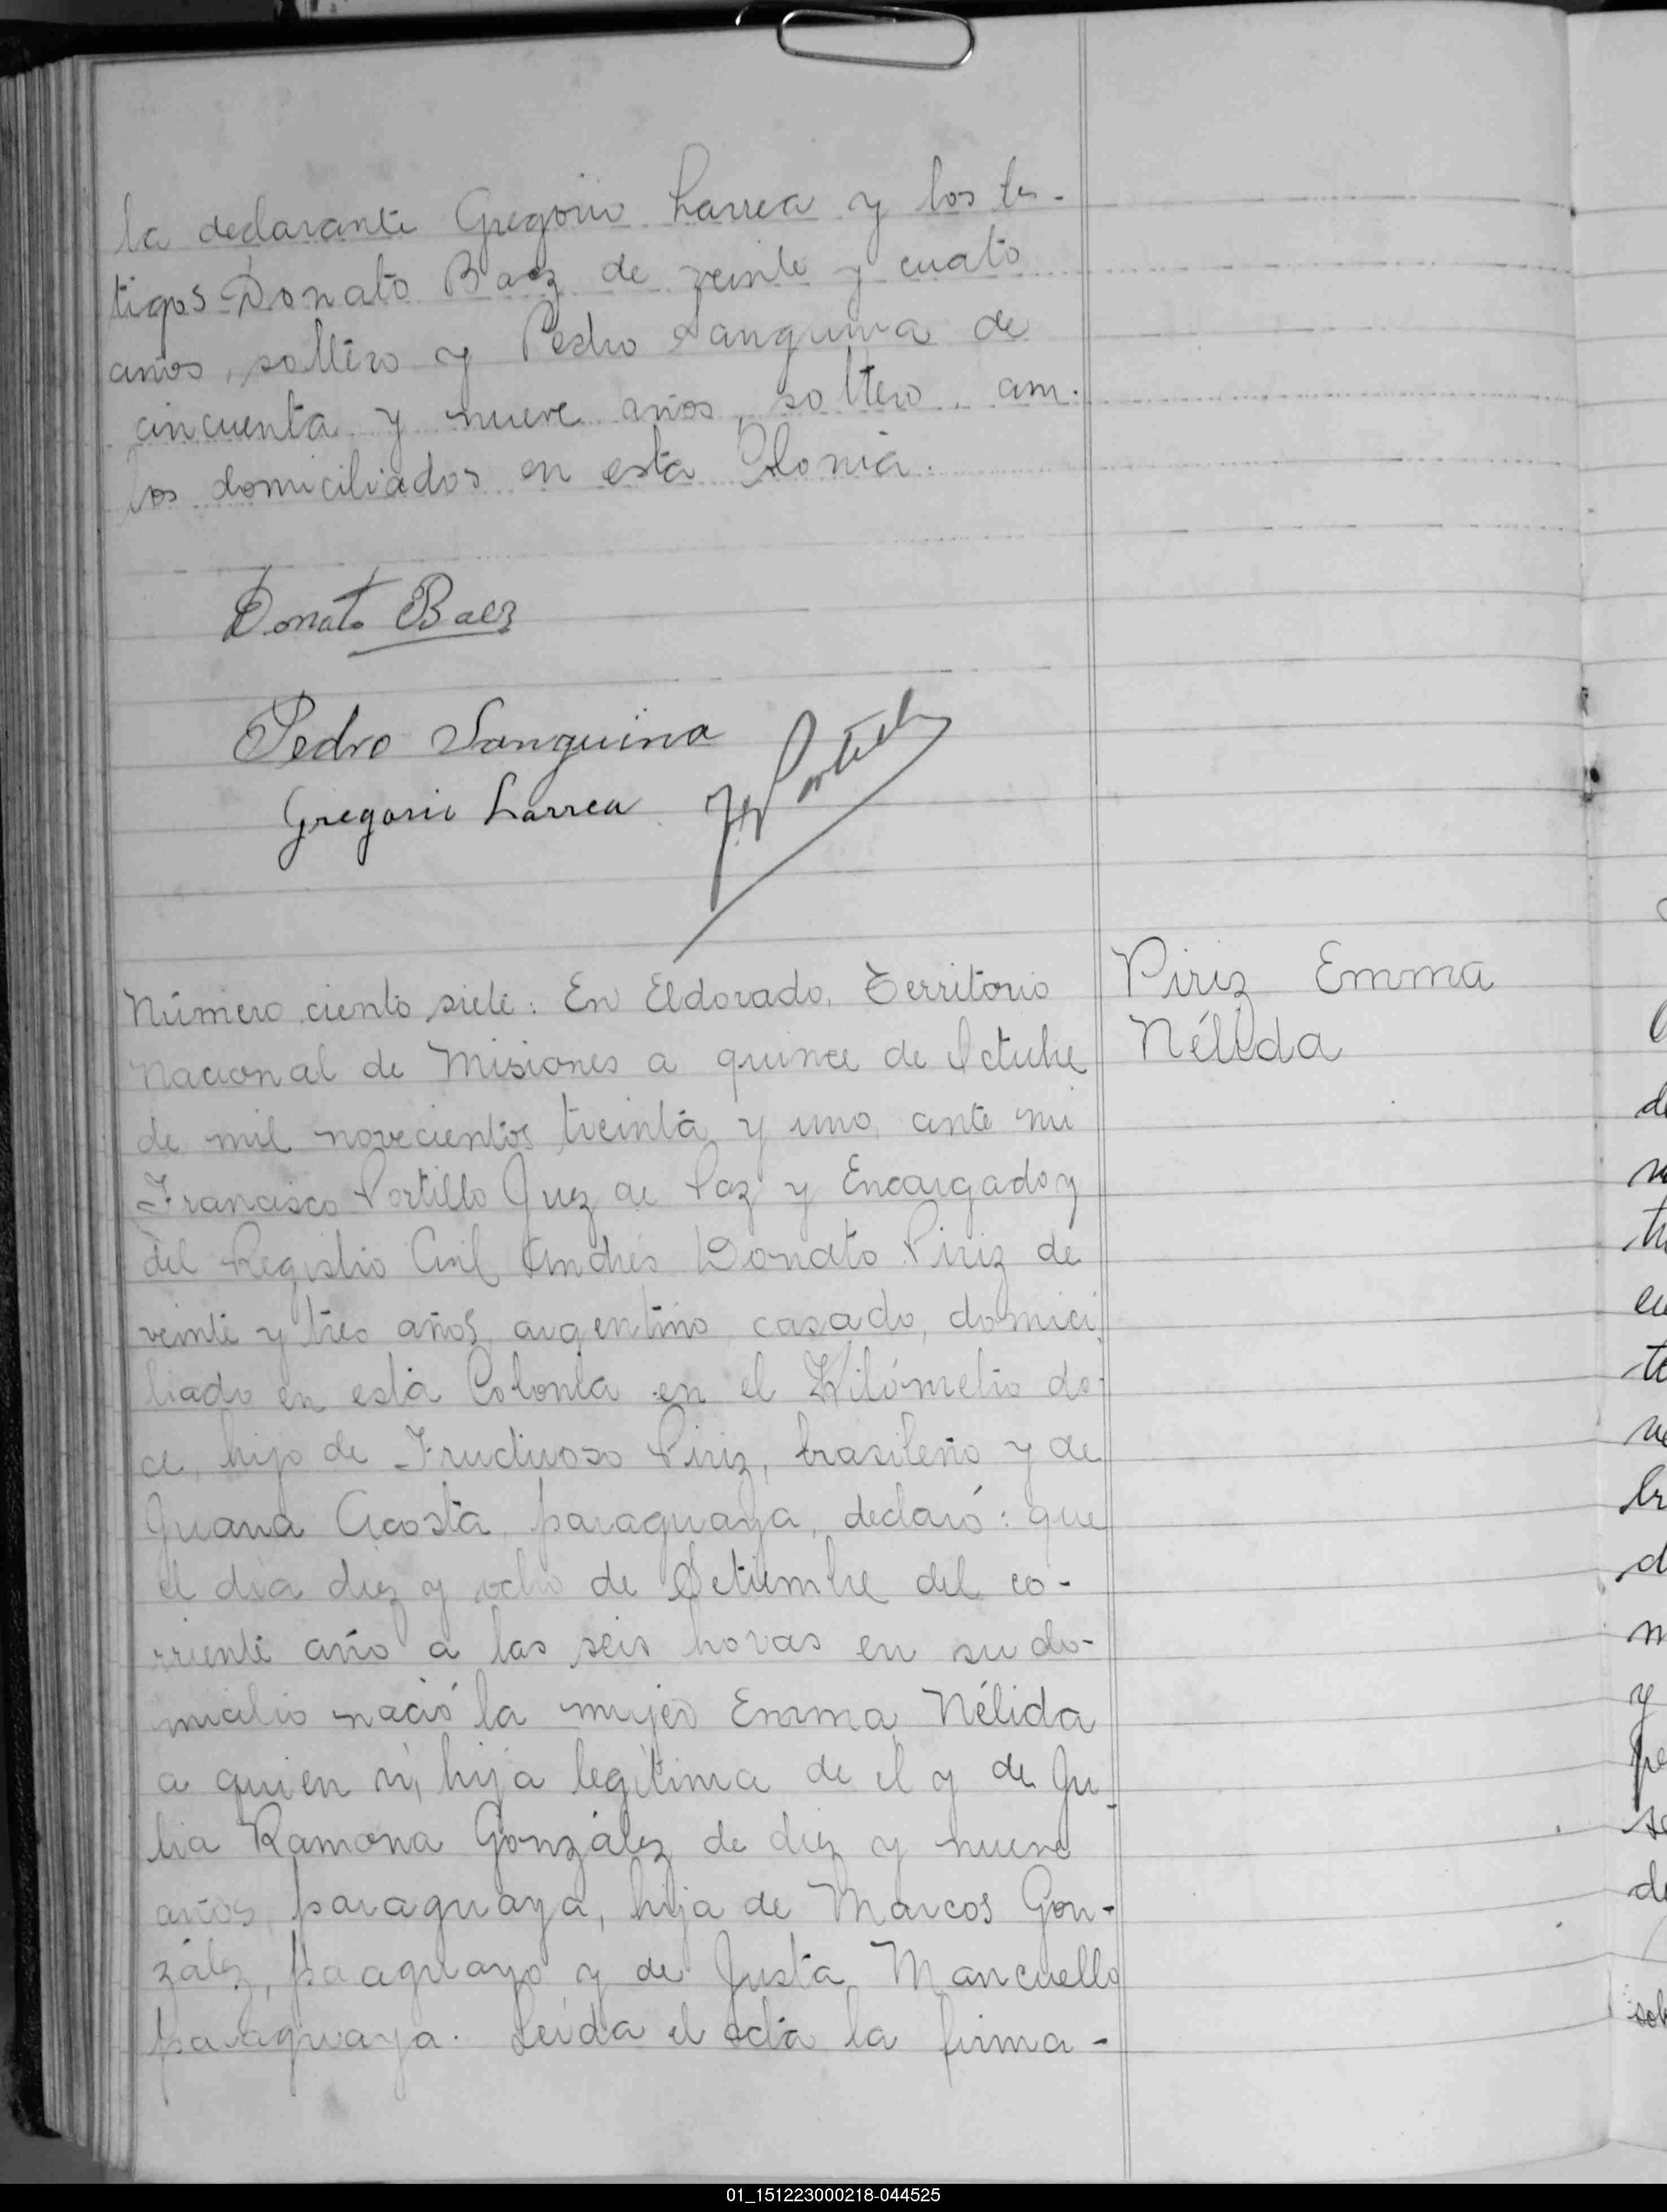 la declarante Gregorio Larrea y los tes-
tigos Donato Baez de veinte y cuato
años, soltero y Pedro Sanguina de
cincuenta y nueve años, soltero, am-
bos domiciliados en esta Colonia.
Donato Baez
Pedro Sanguina
Gregorio Larrea
Portillo
Número ciento siete: En Eldorado, Territorio
Nacional de Misiones a quince de Octubre
de mil novecientos treinta y uno, ante mi
Francisco Portillo Juez de Paz y Encargado
del Registro Civil Andrés Donato Piriz de
veinte y tres años, argentino, casado, domici
liado en esta Colonia en el Kilómetro do-
ce, hijo de Fructuoso Piriz, brasileño y de
Juana Acosta, paraguaya, declaró: que
el día diez y ocho de Setiembre del co-
rriente año a las seis horas en su do-
micilio nació la mujer Emma Nélida
a quien vi, hija legítima de el y de Ju-
lia Ramona González de diez y nueve
años, paraguaya, hija de Marcos Gon-
zález, paaguayo y de Justa Mancuello
paraguaya. Leída el acta la firma-
Piriz Emma
Nélida
01_151223000218-044525